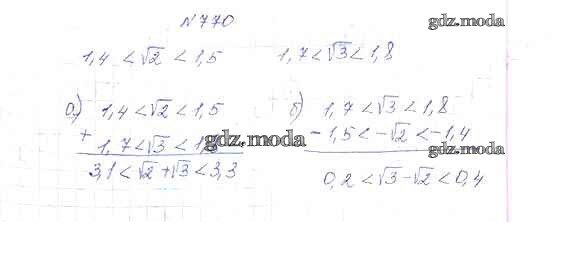 N770
gdz.moda
1,4 < √2 < 1,5 1,7 < √3 < 1,8
а) 1,4 < √2 < 1,5
+ 1,7 < √3 < 1,
3,1 < √2 + √3 < 3,3
gdz.moda
б) 1,7 < √3 < 1,8
- 1,5 < -√2 < -1,4
gdz.moda
0,2 < √3 - √2 < 0,4